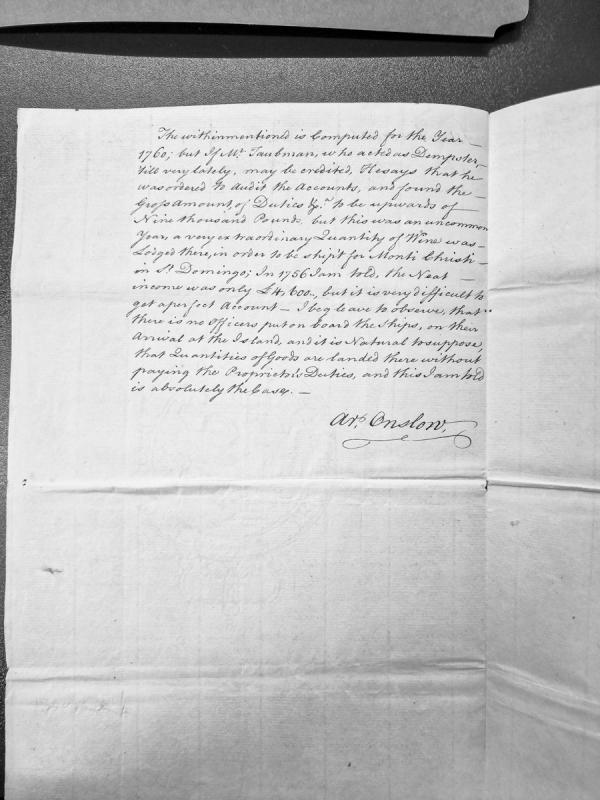 The withinmentioned is Computed for the Year —
1760; but If Mr. Taubman, who acted as Dempster,
'till very lately, may be credited, He says that he
was ordered to Audit the Accounts, and found the —
Gross Amount of Duties &c.a to be upwards of
Nine thousand Pounds, but this was an uncommon
Year, a very extraordinary Quantity of Wine was —
Lodged there, in order to be shipt for Monti Christi —
in St. Domingo; In 1756 I am told, the Neat
income was only £4,600., but it is very difficult to
get a perfect Account — I beg leave to observe, that
there is no Officers put on board the Ships, on their
Arrival at the Island, and it is Natural to suppose,
that Quantities of Goods are landed there without
paying the Propriet:s Duties, and this I am told
is absolutely the Case. —
Ar: Onslow,